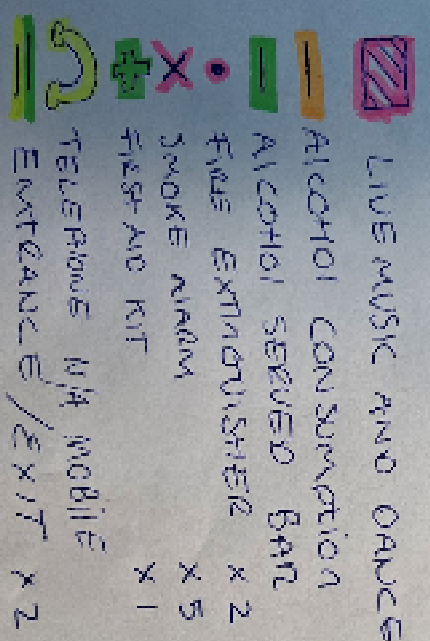 LIVE MUSIC AND DANCE
ALCOHOL CONSUMPTION
ALCOHOL SERVED BAR
FIRE EXTINGUISHER x 2
SMOKE ALARM x 5
FIRST AID KIT x 1
TELEPHONE N/A MOBILE
ENTRANCE/EXIT x 2